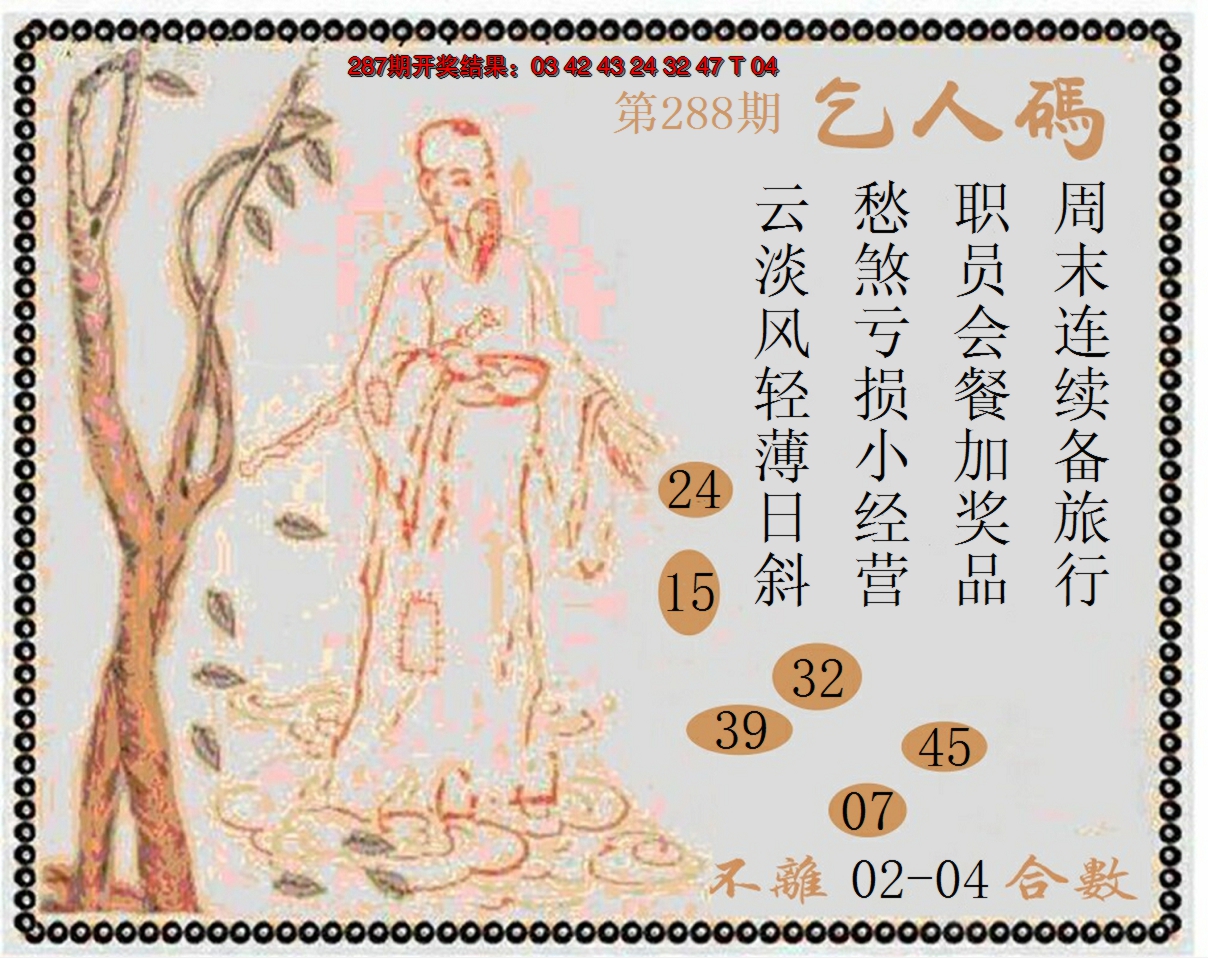 287期开奖结果：03 42 43 24 32 47 T 04
第288期
乞人碼
周末连续备旅行
职员会餐加奖品
愁煞亏损小经营
云淡风轻薄日斜
24
15
32
39
45
07
不離 02-04 合數